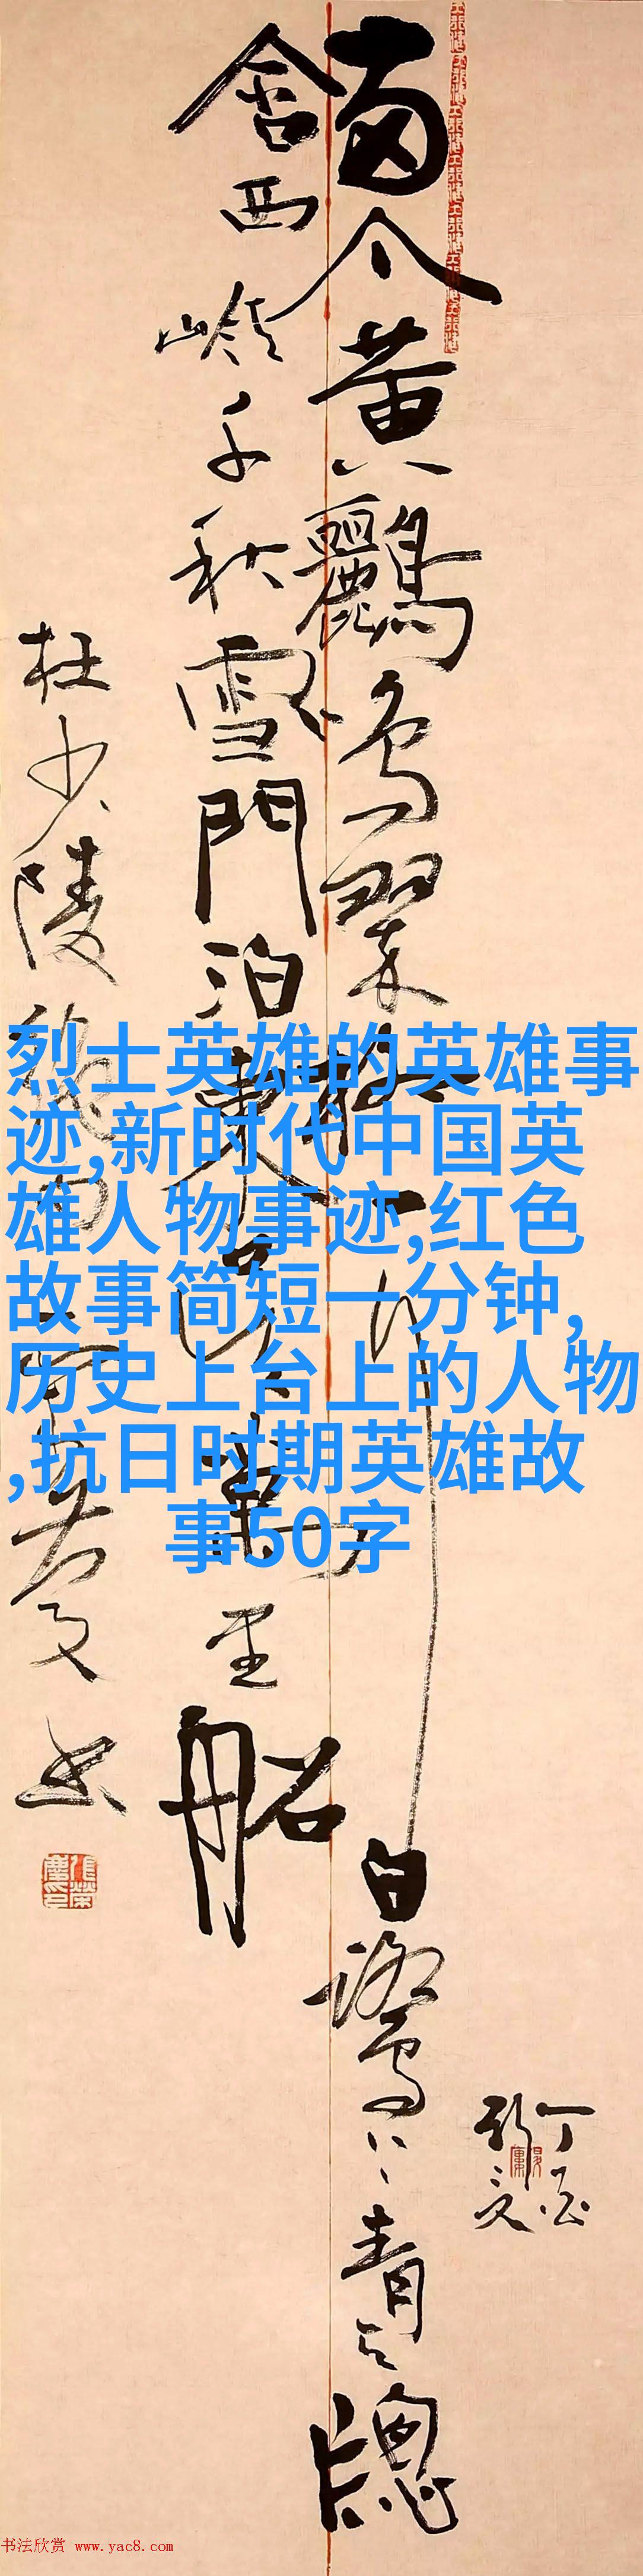 兩个黃鸝鳴翠柳一行白鷺上青天窗
含西嶺千秋雪門泊東吳萬里船
杜少陵
書
烈士英雄的英雄事
迹,新时代中国英
雄人物事迹,红色
故事简短一分钟,
历史上台上的人物
,抗日时期英雄故
事50字
书法欣赏 www.yac8.com